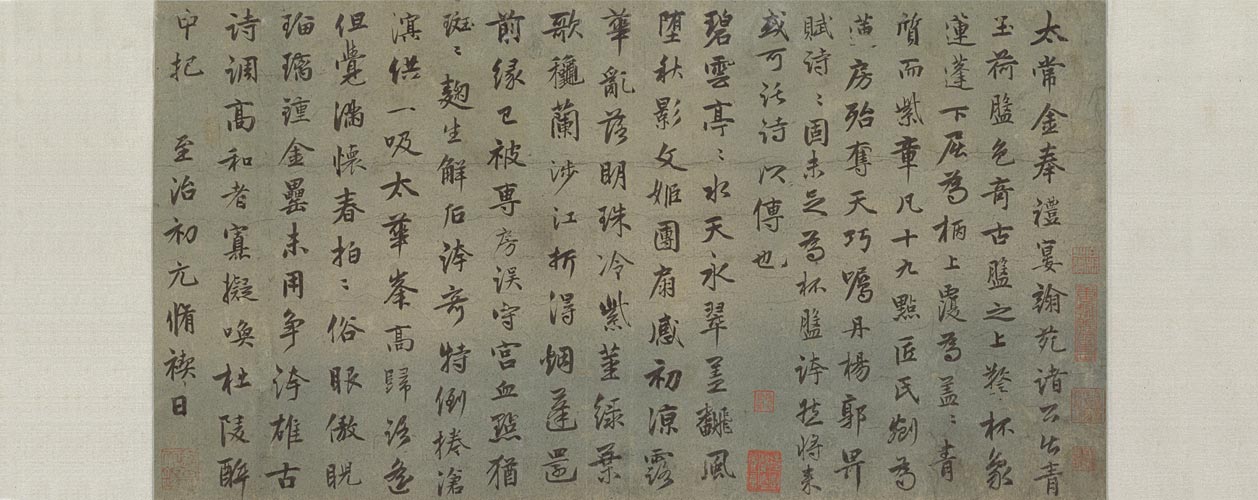 太常金奉禮宴翰苑諸公出青
玉荷盤色奇古盤之上䥫杯象
蓮蓬下屈為柄上覆為蓋〻青
質而紫章凡十九點匠氏剜為
蓮房殆奪天巧囑丹楊郭畀
賦詩〻固未足為杯盤誇然將来
或可託詩以傳也
碧雲亭〻水天永翠蓋飜風
墮秋影文姬團扇感初涼露
華亂落明珠冷紫莖綠葉
歌穠蘭涉江折得蜩蓬還
前緣已被專房誤守宮血點猶
斑〻麴生解后誇奇特倒捲滄
溟供一吸太華峯高歸路遙
但覺滿懷春拍〻俗眼傲睨
瑙璃鍾金罍未用争誇雄古
詩調高和者寡擬喚杜陵醉
中把 至治初元脩禊日